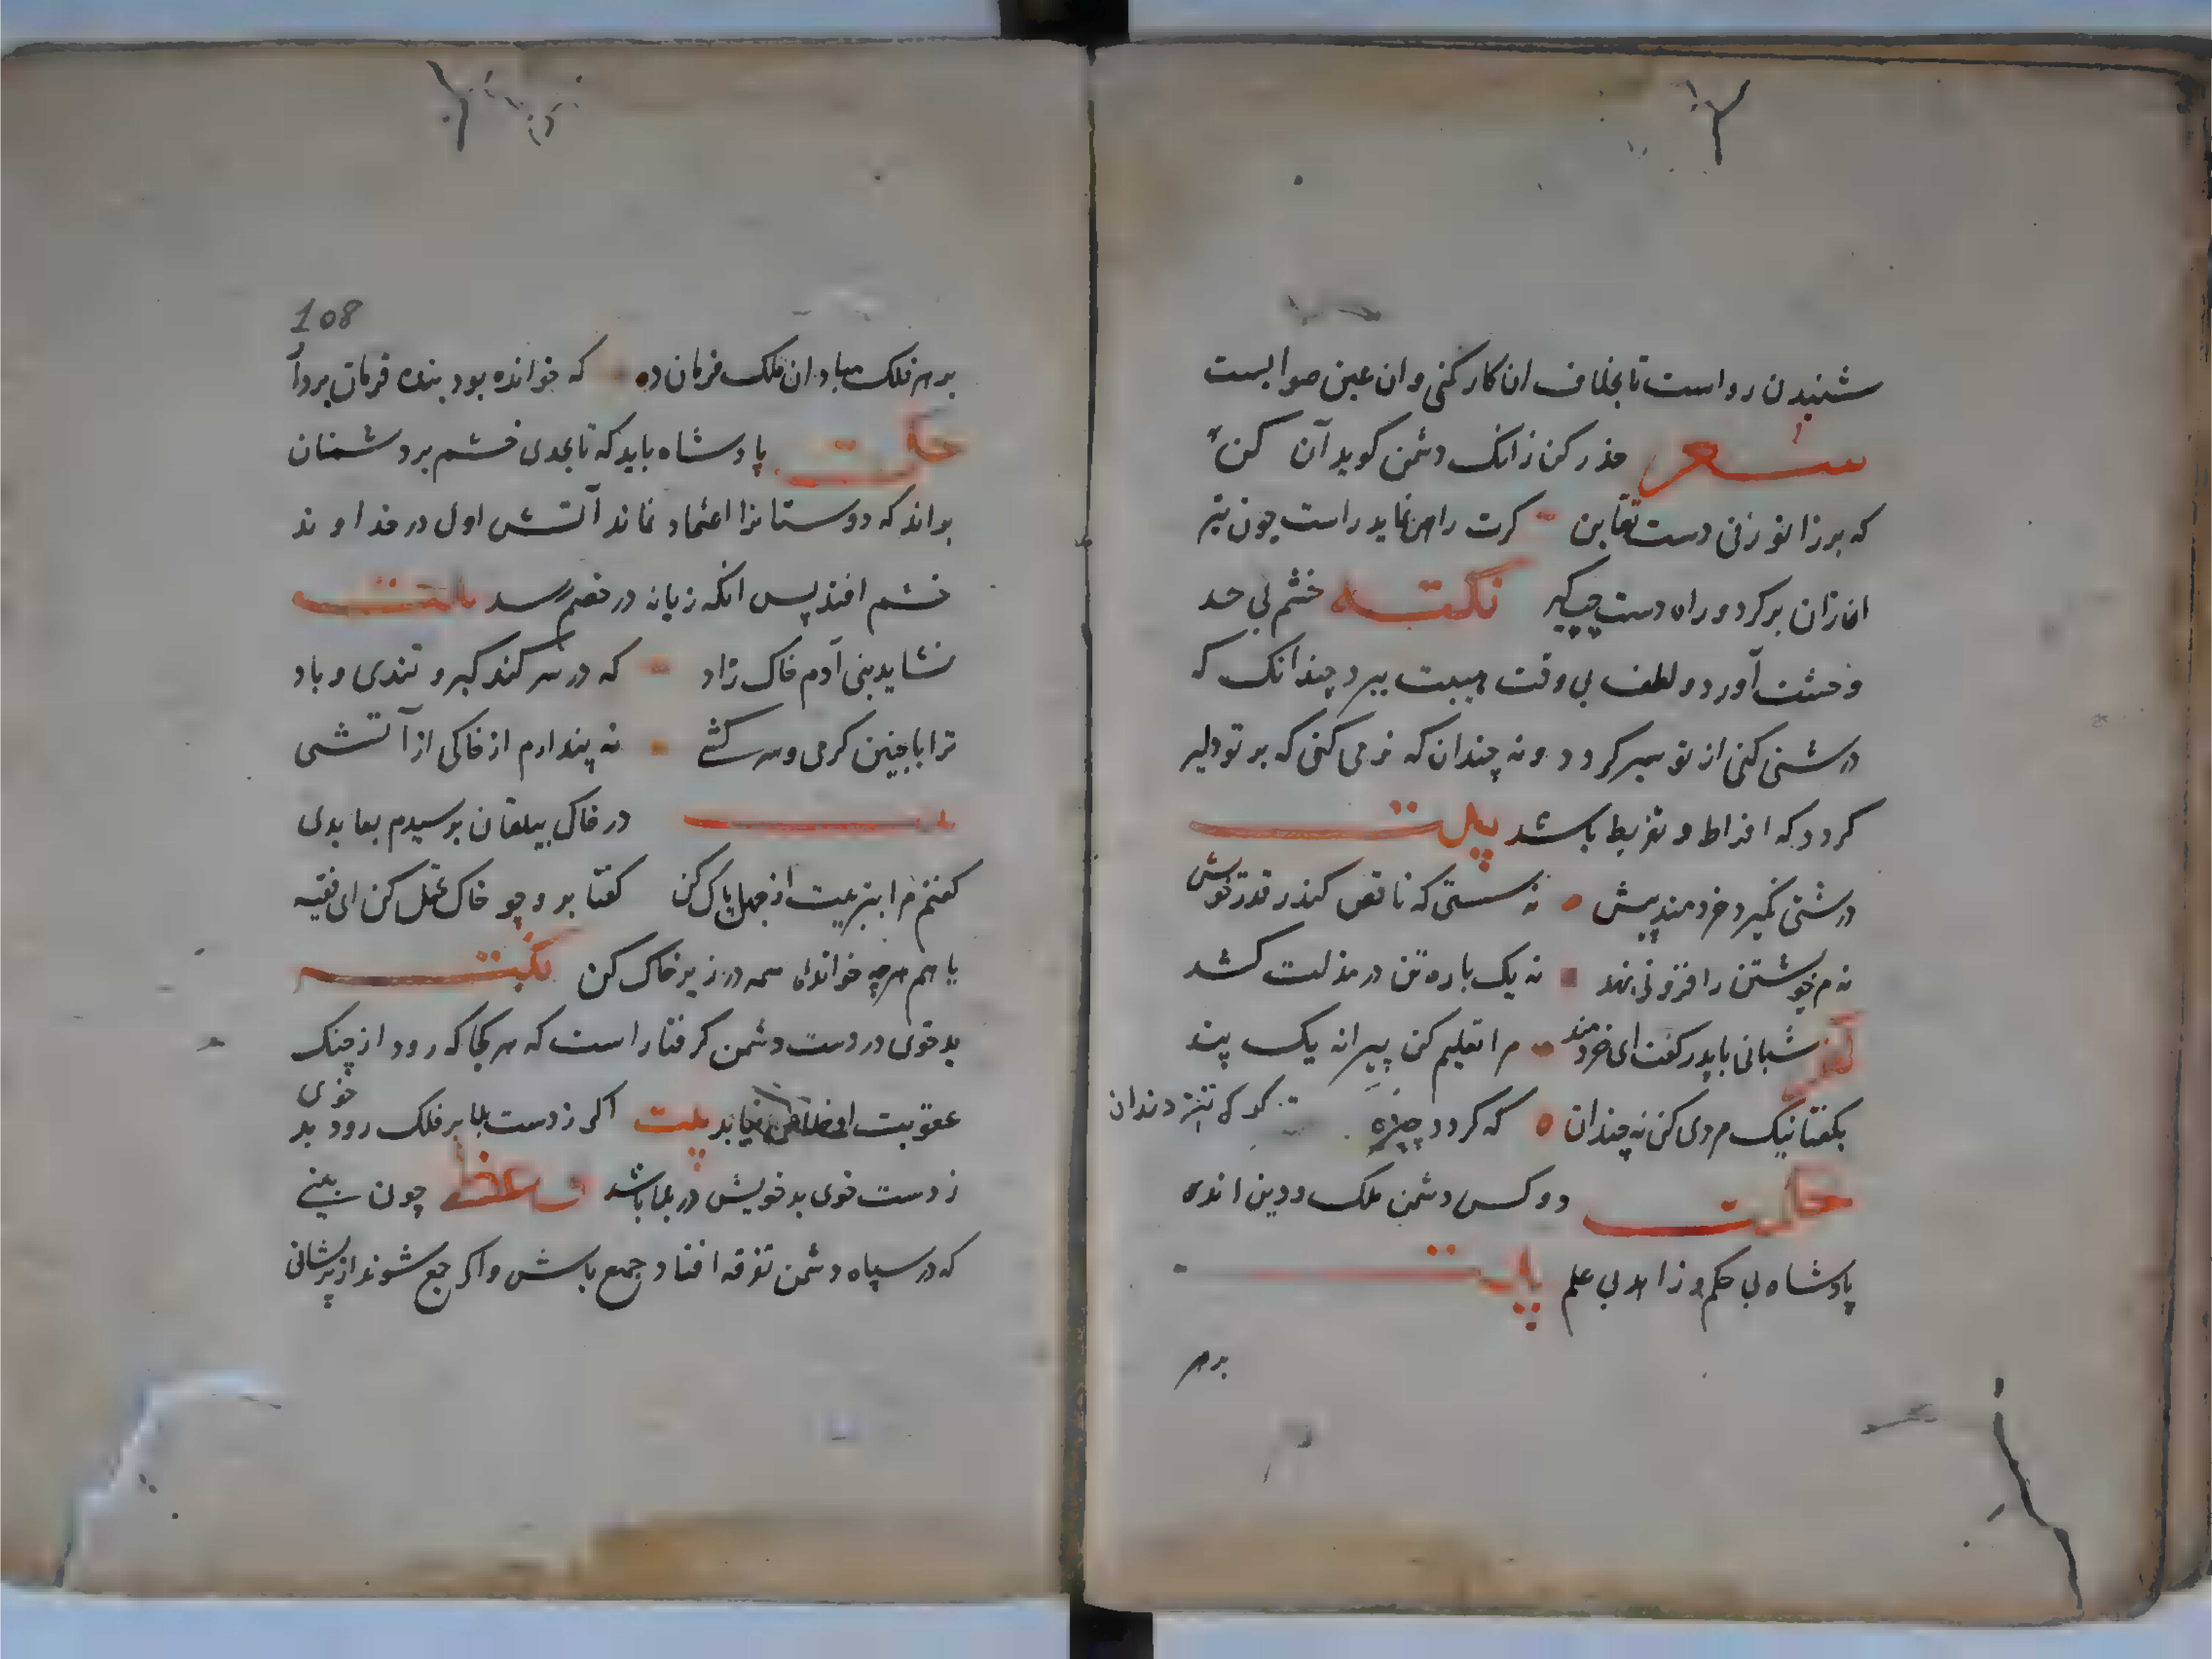 شنیدن رواست تا بخلاف ان کار کنی وان عین صوابست
شعر حذر کن زانک دشمن کوید آن کن
که بر زانو زنی دست تغابن کرت راهی نماید راست چون تیر
ازان برکرد و راه دست چپ کیر نکته خشم بی حد
وحشت آورد و لطف بی وقت هیبت ببرد چندانک که
درشتی کنی از تو سیر کردد و نه چندان که نرمی کنی که بر تو دلیر
کردد که افراط و تفریط باشد بیت
درشتی نکیرد خردمند پیش نه سستی که ناقص کند قدر خویش
نه مر خویشتن را فزونی نهد نه یک باره تن در مذلت کشد
شبانی با پدر کفت ای خردمند مرا تعلیم کن پیرانه یک پند
بکفتا نیک مردی کن نه چندان که کردد چیره کرک تیز دندان
حکمت دو کس دشمن ملک و دین اند
پادشاه بی حکم و زاهد بی علم بیت
بر سر
108
بر سر ملک مباد ان ملک فرمان ده که خوانده بود بنده فرمان بردار
حکمت پادشاه باید که تا بحدی خشم بر دشمنان
براند که دوستانرا اعتماد نماند آتش اول در خداوند
خشم افتد پس انکه زبانه در خصم رسد
نشاید بنی آدم خاک زاد که در سر کند کبر و تندی و باد
ترا با چنین کرمی و سرکشی نه پندارم از خاکی از آتشی
در خاک بیلقان برسیدم بعابدی
کفتم مرا بتربیت از جهل پاک کن کفتا برو چو خاک تحمل کن ای فقیه
یا هم هرچه خوانده همه در زیر خاک کن نکته
بدخوی در دست دشمن کرفتار است که هر کجا که رود از چنک
عقوبت او خلاص نیابد بیت اکر ز دست بلا بر فلک رود بد خوی
ز دست خوی بد خویش در بلا باشد وعظ چون بینی
که در سپاه دشمن تفرقه افتاد جمع باش و اکر جمع شوند از پریشانی